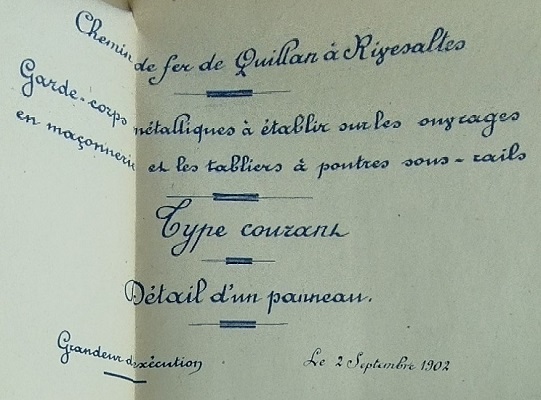 Chemin de fer de Quillan à Rivesaltes
Garde-corps métalliques à établir sur les ouvrages
en maçonnerie et les tabliers à poutres sous-rails
Type courant
Détail d'un panneau.
Grandeur d'exécution
Le 2 Septembre 1902